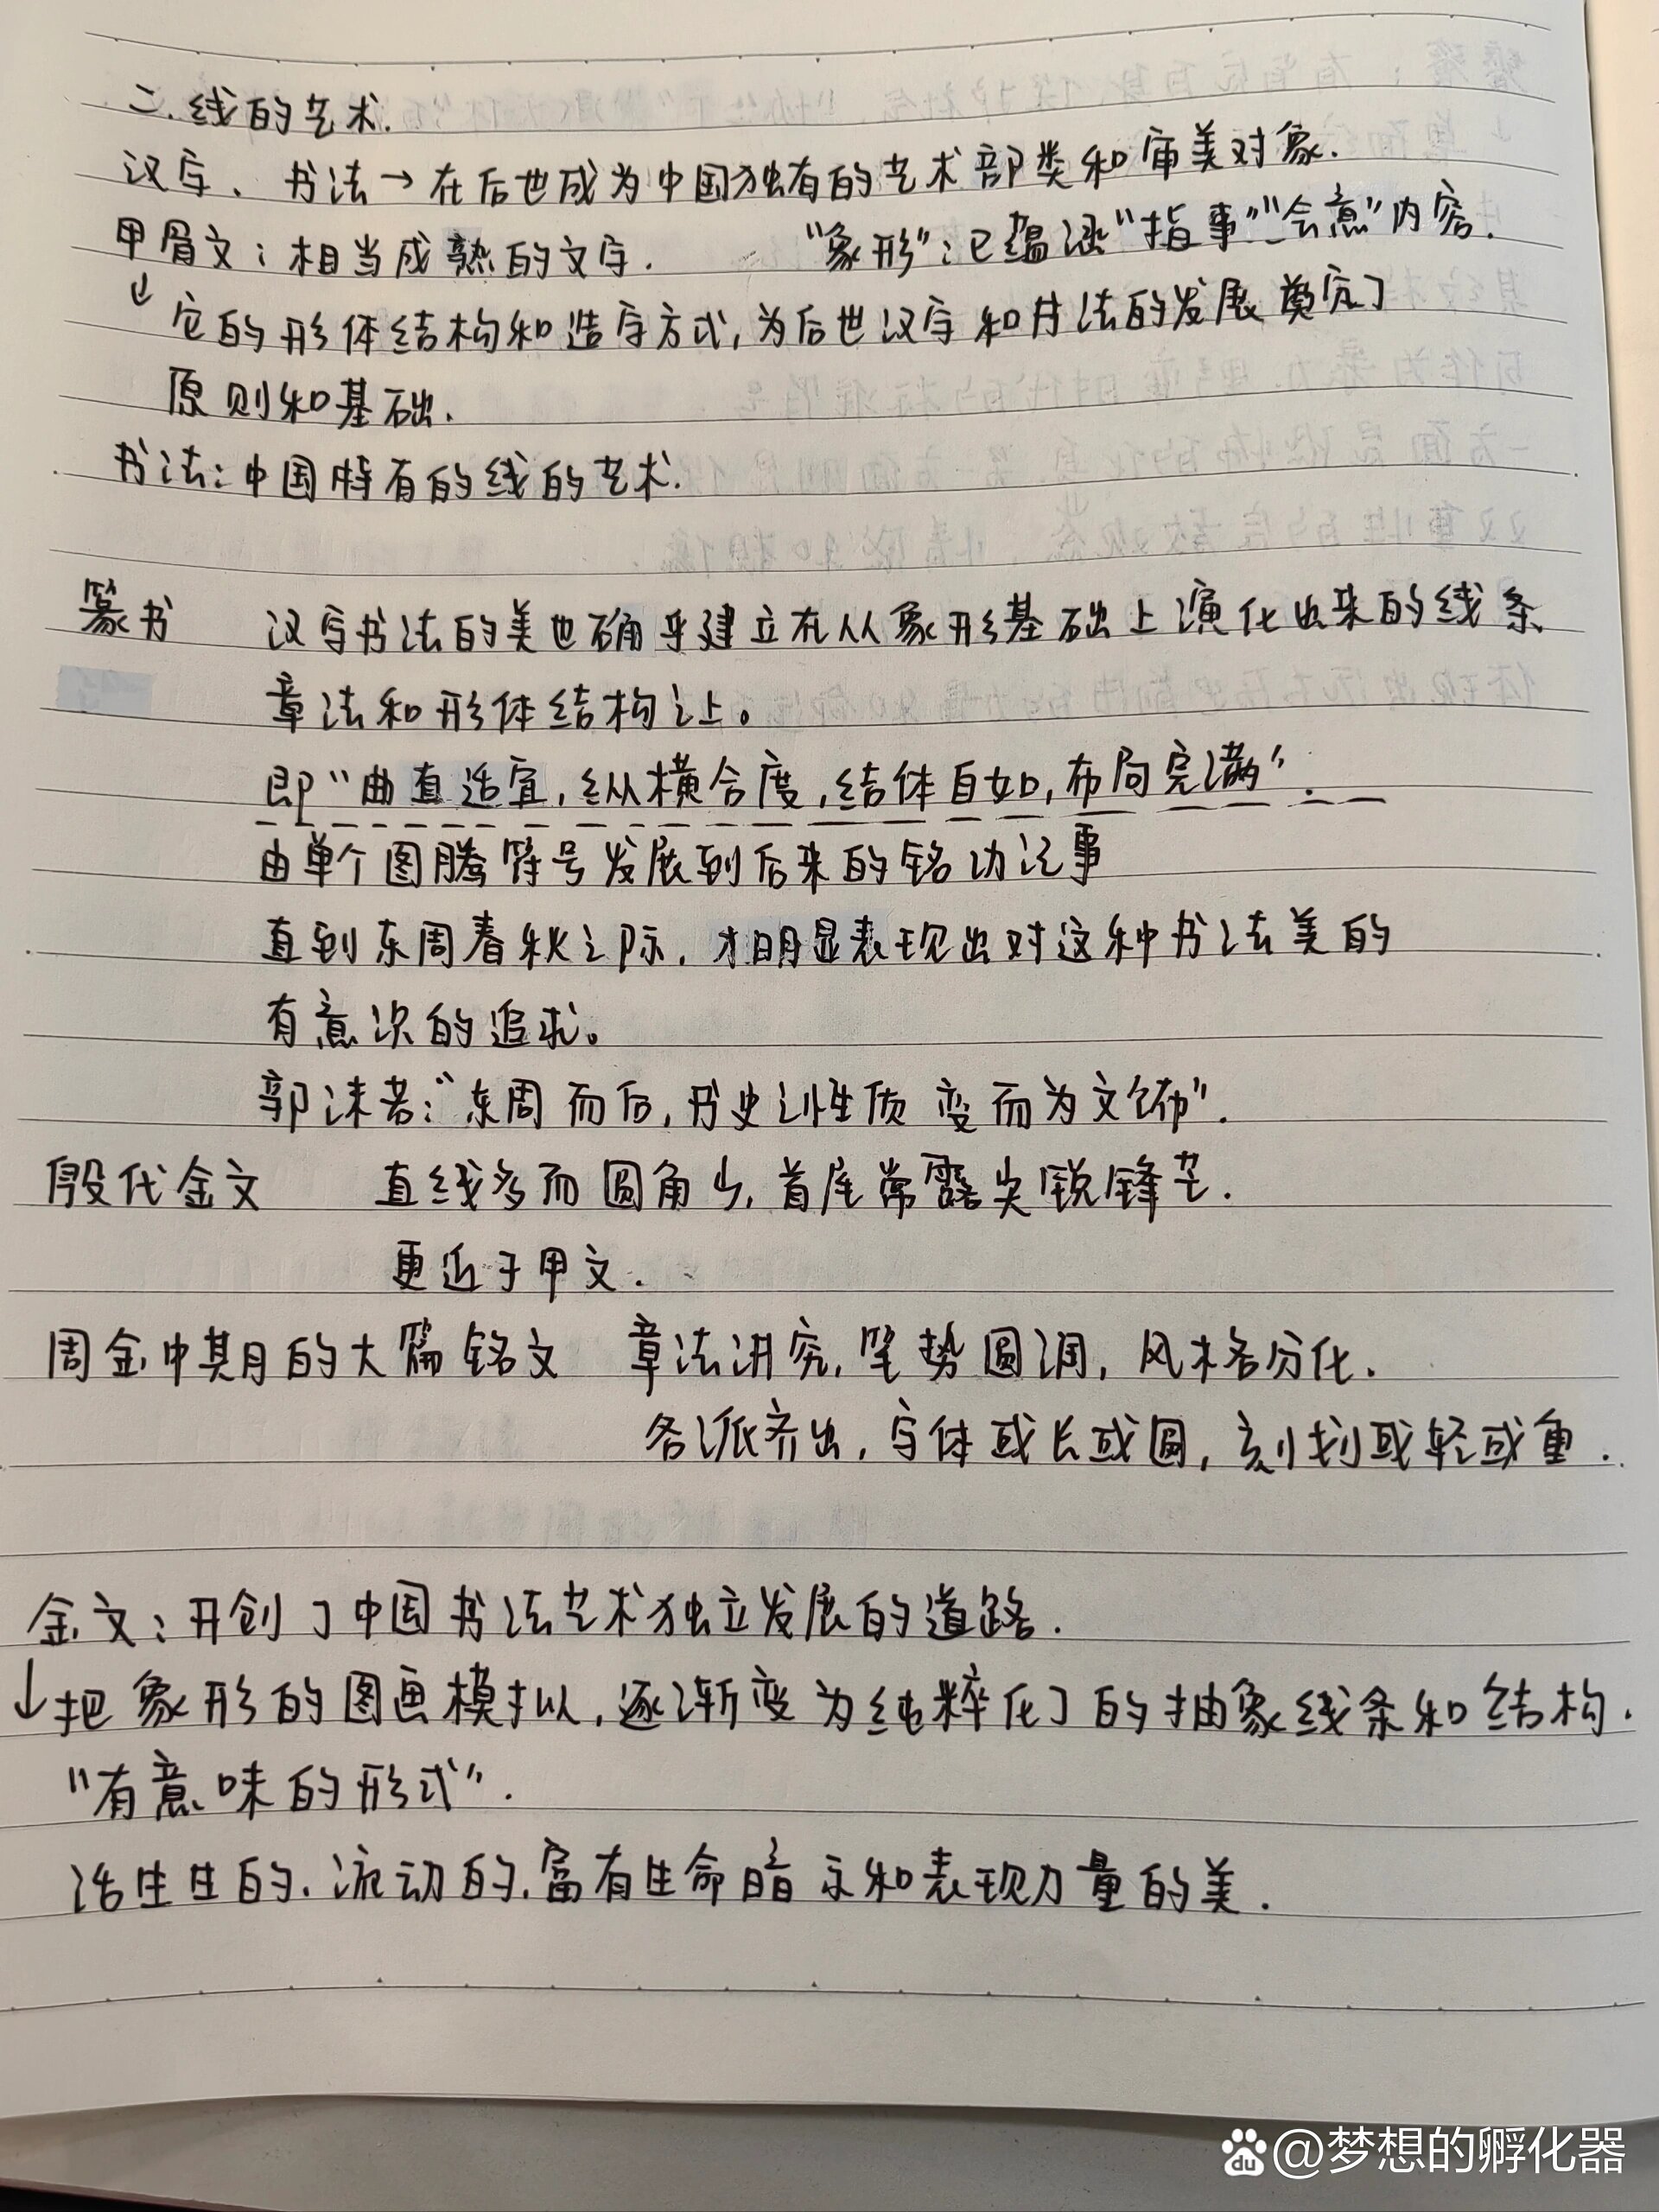 二.线的艺术.
汉字、书法→在后世成为中国独有的艺术部类和审美对象.
甲骨文:相当成熟的文字. "象形":已蕴涵"指事""会意"内容.
↓它的形体结构和造字方式,为后世汉字和书法的发展奠定了
原则和基础.
书法:中国特有的线的艺术.
篆书 汉字书法的美也确乎建立在从象形基础上演化出来的线条
章法和形体结构之上。
即"曲直适宜,纵横合度,结体自如,布局完满".
由单个图腾符号发展到后来的铭功记事
直到东周春秋之际,才明显表现出对这种书法美的
有意识的追求。
郭沫若:"东周而后,书史之性质变而为文饰".
殷代金文 直线多而圆角少,首尾常露尖锐锋芒.
更近于甲文.
周金中期的大篇铭文 章法讲究,笔势圆润,风格分化.
各派齐出,字体或长或圆,刻划或轻或重.
金文:开创了中国书法艺术独立发展的道路.
↓把象形的图画模拟,逐渐变为纯粹化了的抽象线条和结构.
"有意味的形式".
活生生的.流动的.富有生命暗示和表现力量的美.
du @梦想的孵化器